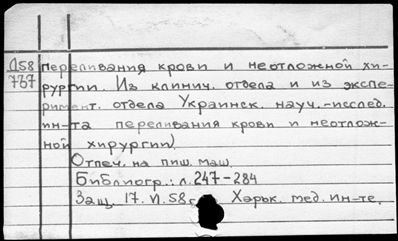 Д58 переливания крови и неотложной хи-
767 рургии. Из клинич. отдела и из экспе-
римент. отдела Украинск. науч.-исслед.
ин-та переливания крови и неотлож-
ной хирургии).
Отпеч. на пиш. маш.
Библиогр.: л. 247-284
Защ. 17. VI. 58 г. Харьк. мед. ин-те.